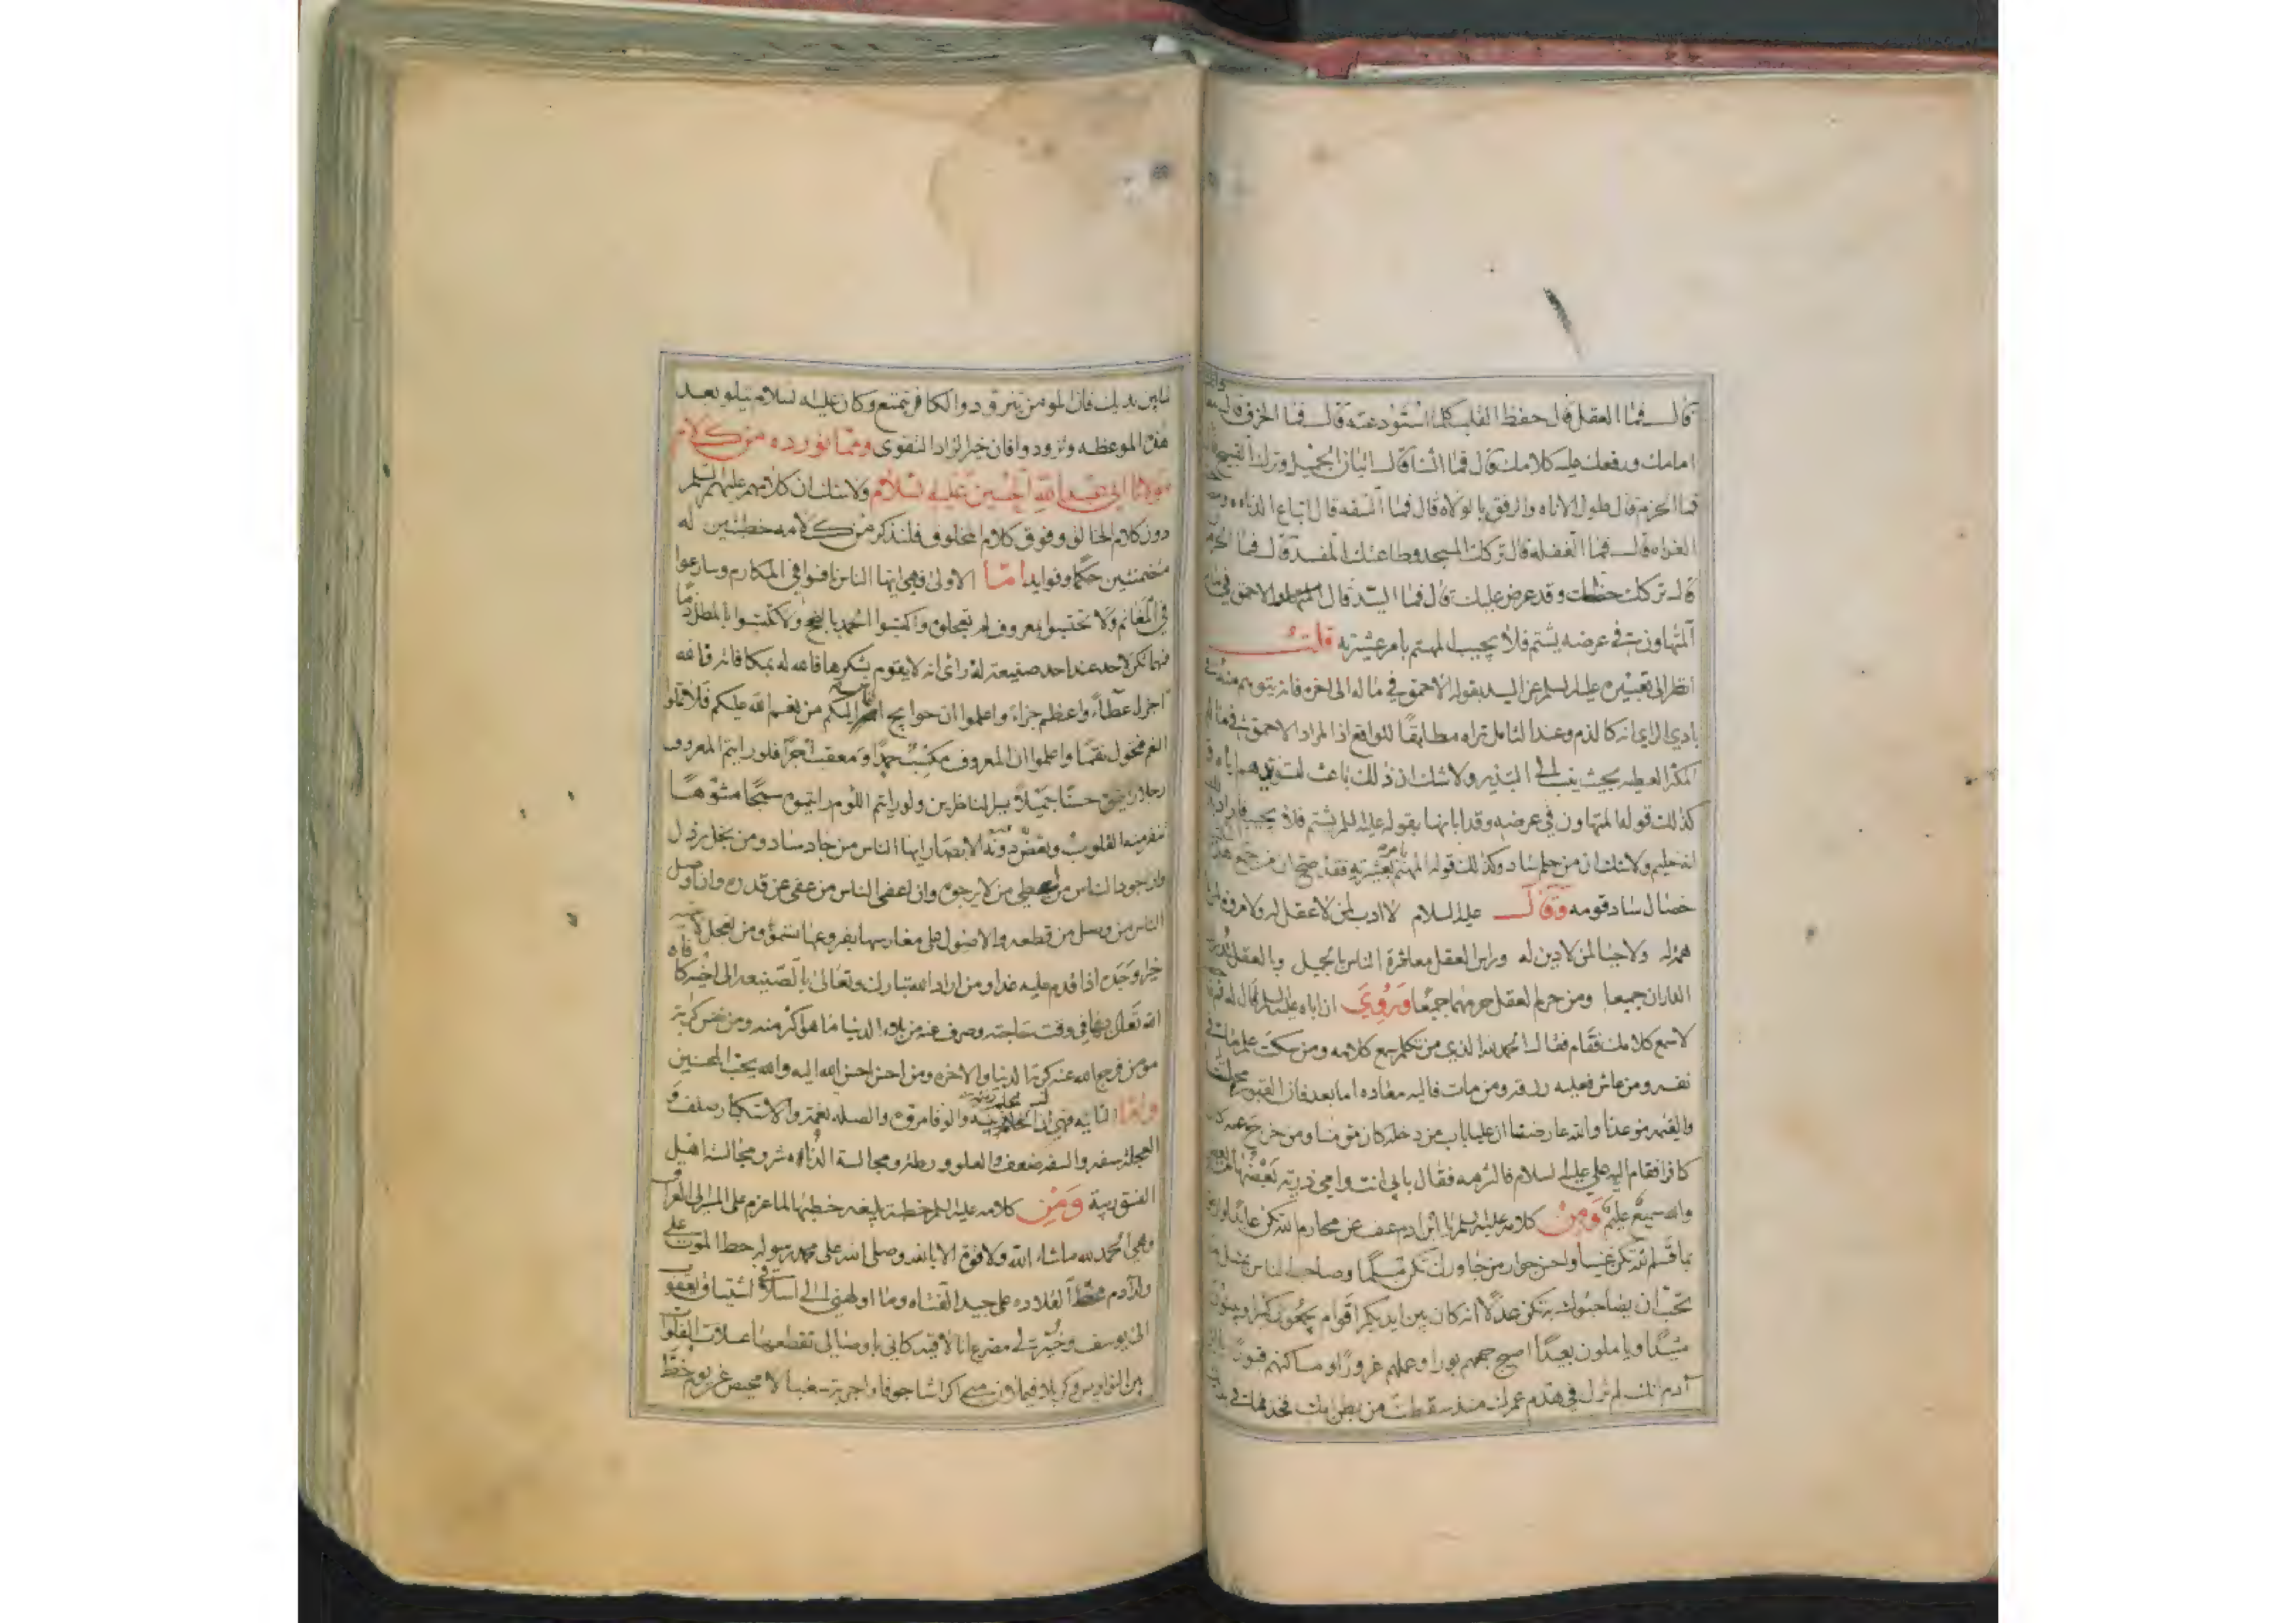 قال فما العقل قال حفظ القلب كلما استودعته قال فما الخرق قال
امامك ورفعك عليه كلامك قال فما الثنا قال اتيان الجميل وترك القبيح
فما الحزم قال طول الاناه والرفق بالولاه قال فما السفه قال اتباع الدناه
الغواه قال فما الغفله قال تركك المسجد وطاعتك المفسد قال فما
قال تركك حظك وقد عرض عليك قال فما السيد قال الاحمق في
المتهاون في عرضه يشتم فلا يجيب المهتم بامر عشيرته قلت
انظر الى تعبيره عليه السلم عن السيد بقوله الاحمق في ماله الى اخره فانه يتوهم منه
بادي الراي انه كالذم وعند التامل تراه مطابقا للواقع اذ المراد الاحمق في ماله
المكثر العطيه بحيث ينسب الى التبذير ولا شك ان ذلك باعث
كذلك قوله المتهاون في عرضه وقد ابانها بقوله عليه السلم يشتم فلا يجيب
انه حليم ولا شك ان من حلم ساد وكذلك قوله المهتم بامره عشيرته فقد صح ان من جمع هذه
خصال ساد قومه وقال عليه السلام لا ادب لمن لا عقل له ولا مروه لمن
همة له ولا حيا لمن لا دين له وراس العقل معاشرة الناس بالجميل وبالعقل
الداران جميعا ومن حرم العقل حرمهما جميعا وروي ان اباه عليه السلم قال له قم
لاسمع كلامك فقام فقال الحمد لله الذي من تكلم سمع كلامه ومن سكت علم ما في
نفسه ومن عاش فعليه رزقه ومن مات فاليه معاده اما بعد فان القبور محلتنا
والقيمه موعدنا والله عارضنا ان عليا باب من دخله كان مومنا ومن خرج عنه كان
كافرا فقام اليه علي عليه السلام فالتزمه فقال بابي انت وامي ذرية بعضها من
والله سميع عليم ومن كلامه عليه السلم يا ابن ادم عف عن محارم الله تكن عابدا
بما قسم الله تكن غنيا واحسن جوار من جاورك تكن مسلما وصاحب الناس بمثل
تحب ان يصاحبوك به تكن عدلا انه كان بين ايديكم اقوام يجمعون كثيرا ويبنون
مشيدا وياملون بعيدا اصبح جمعهم بورا وعملهم غرورا ومساكنهم قبورا
آدم انك لم تزل في هدم عمرك منذ سقطت من بطن امك فخذ مما في
لما بين يديك فان المومن يتزود والكافر يتمتع وكان عليه السلام يتلو بعد
هذه الموعظه وتزودوا فان خير الزاد التقوى ومما نورده من كلام
مولانا ابي عبد الله الحسين عليه السلام ولا شك ان كلامهم عليهم السلم
دون كلام الخالق وفوق كلام المخلوق فلنذكر من كلامه خطبتين له
متضمنتين حكما وفوايد اما الاولى فهي ايها الناس نافسوا في المكارم وسارعوا
في المغانم ولا تحتسبوا بمعروف لم تعجلوه واكتسبوا الحمد بالنجح ولا تكتسبوا بالمطل ذما
فمهما تكن لاحد عند احد صنيعة له راى انه لا يقوم بشكرها فالله له بمكافاته فانه
اجزل عطاء واعظم جزاء واعلموا ان حوايج الناس اليكم من نعم الله عليكم فلا تملوا
النعم فتحول نقما واعلموا ان المعروف مكسب حمدا ومعقب اجرا فلو رايتم المعروف
رجلا رايتموه حسنا جميلا يسر الناظرين ولو رايتم اللوم رايتموه سمجا مشوها
تنفر منه القلوب وتغض دونه الابصار ايها الناس من جاد ساد ومن بخل رذل
وان اجود الناس من اعطى من لا يرجوه وان اعفى الناس من عفى عن قدره وان اوصل
الناس من وصل من قطعه والاصول على مغارسها بفروعها تسمو ومن تعجل لاخيه
خيرا وجده اذا قدم عليه غدا ومن اراد الله تبارك وتعالى بالصنيعه الى اخيه كافاه
الله تعالى بها في وقت حاجته وصرف عنه من بلاء الدنيا ما هو اكثر منه ومن نفس كربة
مومن فرج الله عنه كرب الدنيا والاخره ومن احسن احسن الله اليه والله يحب المحسنين
واما الثانيه فهي ان الحلم زينة والوفا مروة والصله نعمة والاستكبار صلف و
العجلة سفه والسفه ضعف والعلو ورطة ومجالسة الدناه شر ومجالسة اهل
الفسق ريبة ومن كلامه عليه السلم خطبة بليغه خطبها لما عزم على المسير الى العراق
وهي الحمد لله ما شاء الله ولا قوة الا بالله وصلى الله على محمد رسوله خط الموت على
ولد آدم مخط القلاده على جيد الفتاه وما اولهني الى اسلافي اشتياق يعقوب
الى يوسف وخير لي مصرع انا لاقيه كاني باوصالي تقطعها عسلان الفلوات
بين النواويس وكربلا فيملان مني اكراشا جوفا واجربة سغبا لا محيص عن يوم خط